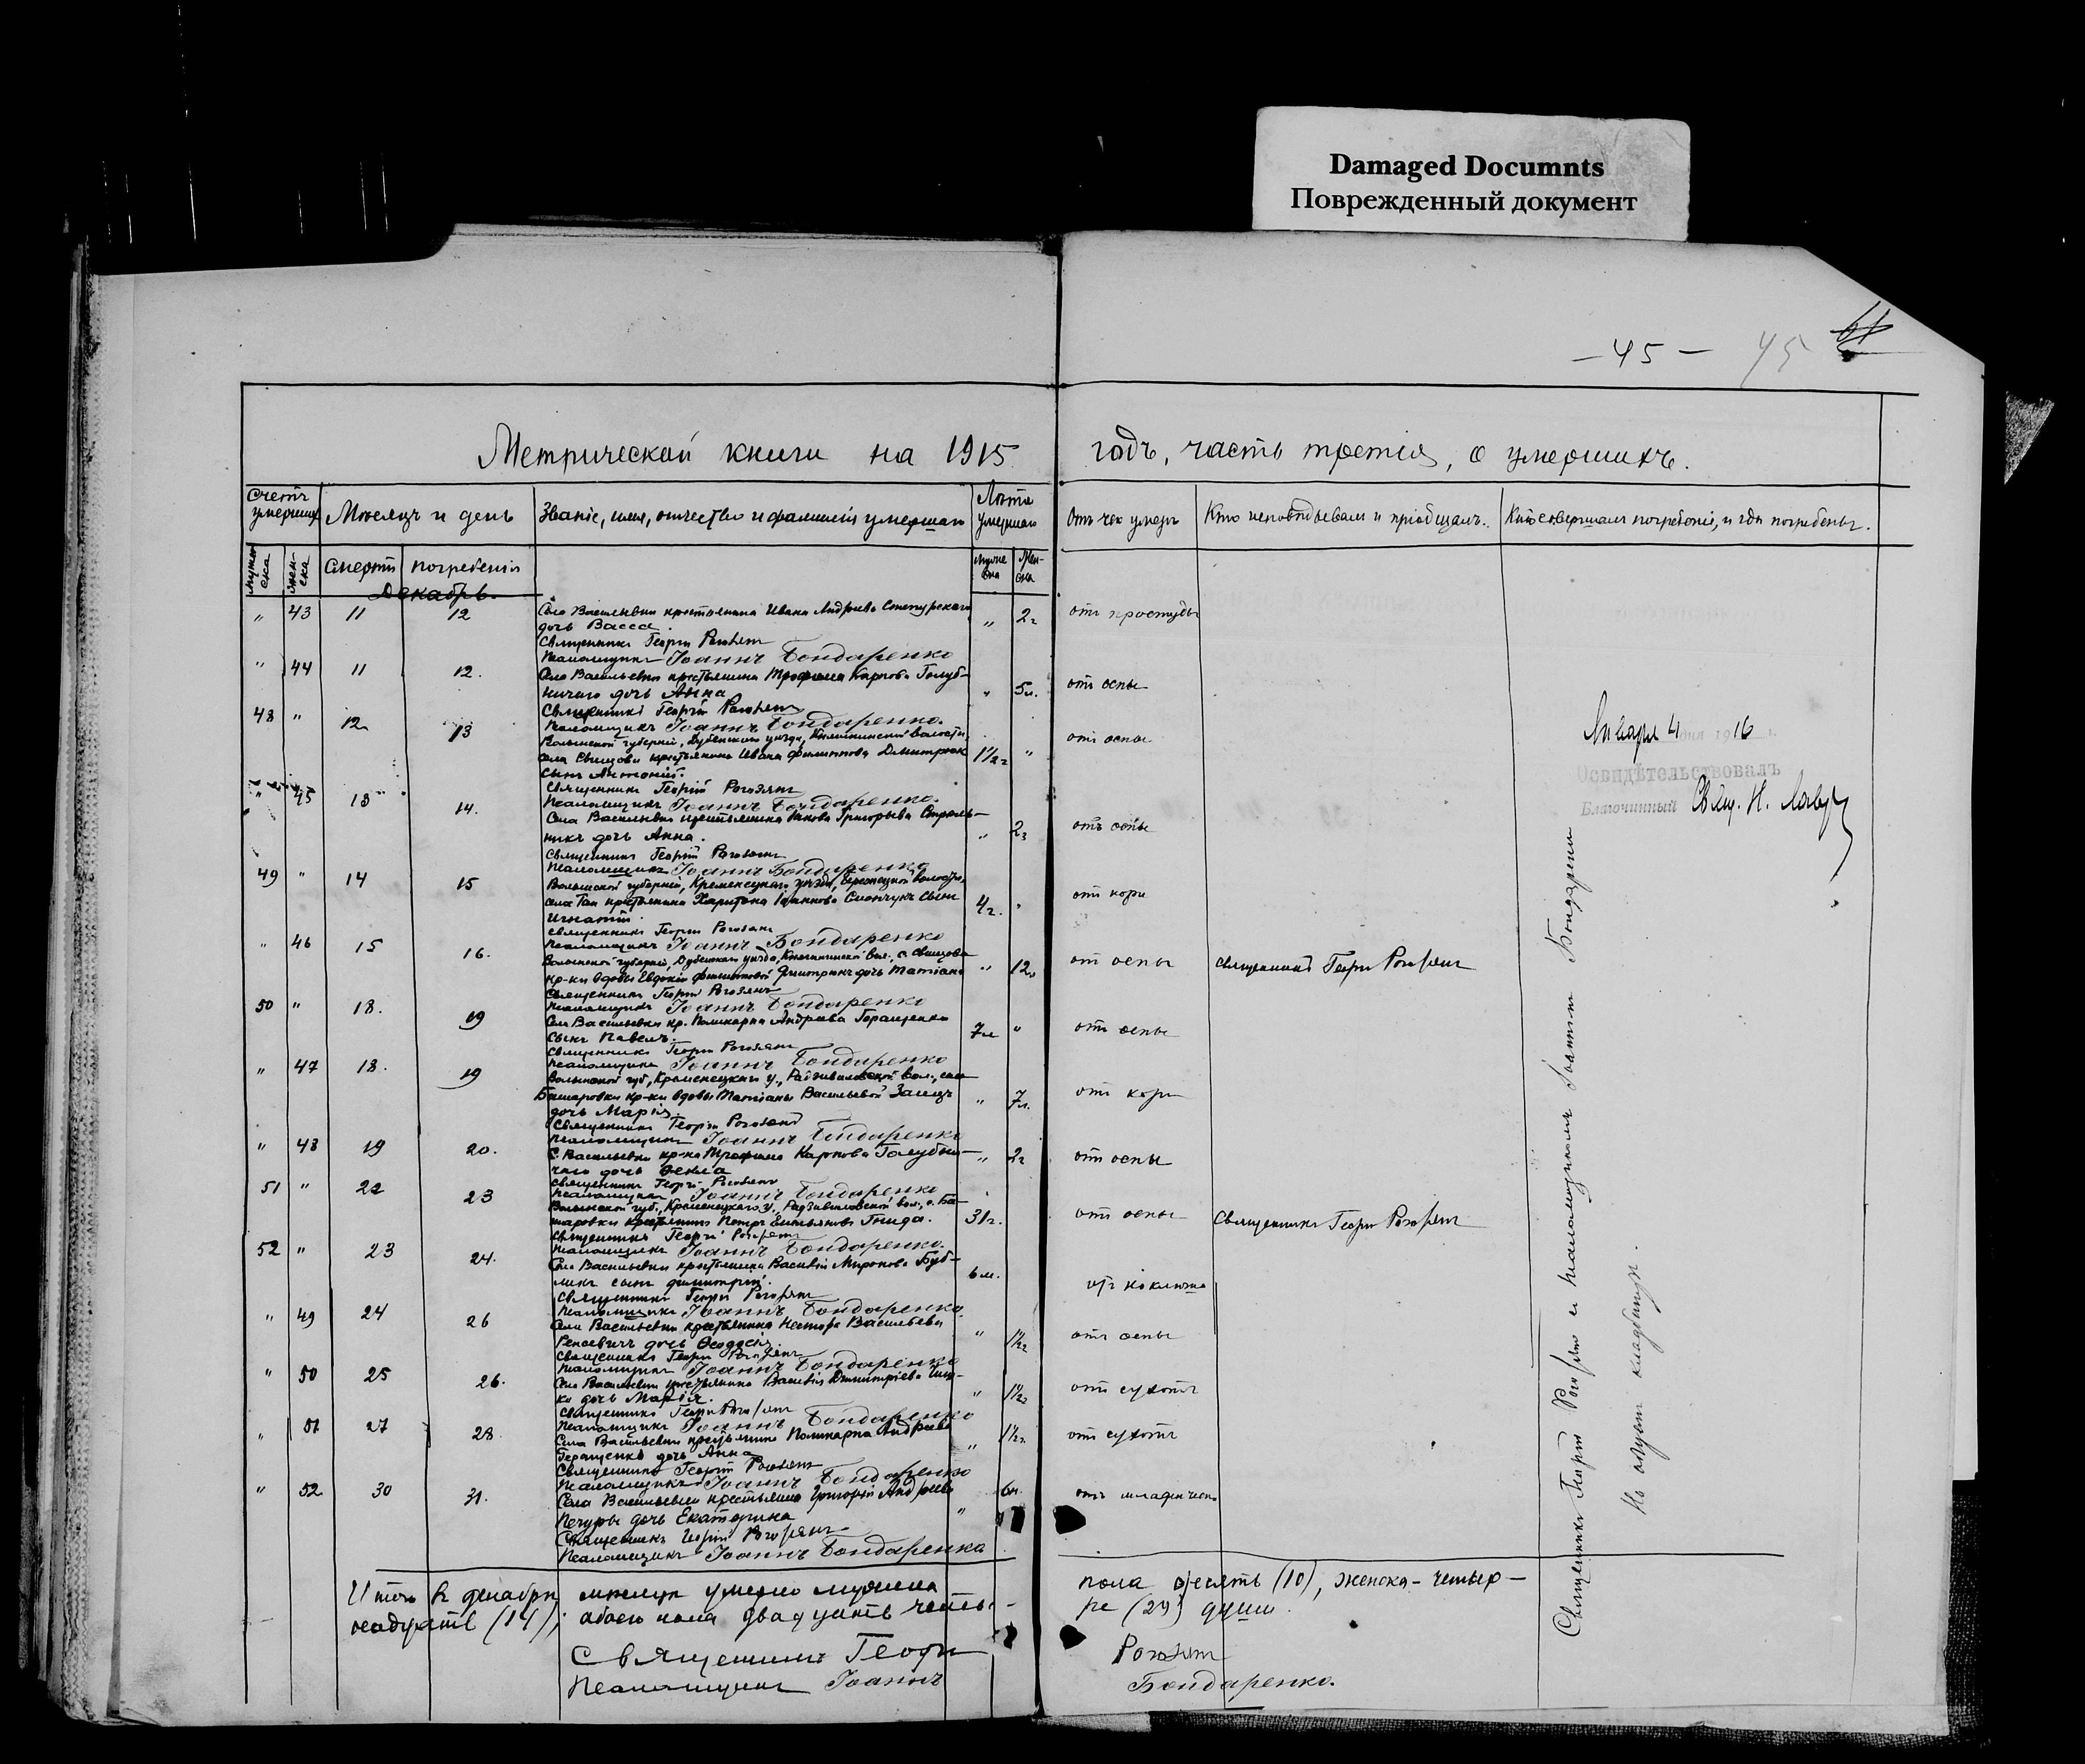 Damaged Documnts
Поврежденный документ
— 45 — 45
Метрической книги на 1915 годъ, часть третія, о умершихъ.
Счетъ умершихъ
Мѣсяцъ и день
Званіе, имя, отчество и фамилія умершаго
Лѣта умершаго
Отъ чего умеръ
Кто исповѣдывалъ и пріобщалъ.
Кто совершалъ погребеніе, и гдѣ погребены.
мужеска
женска
смерти
погребенія
мужеска
женска
Декабрь.
„ 43 11 12 Села Васильевки крестьянина Ивана Андреева „ 2г отъ простуды
дочь Васса.
Священникъ Георгій Рогозянъ
Псаломщикъ Іоаннъ Бондаренко
„ 44 11 12. Села Васильевки крестьянина Трофима Карпова Голуб-
ничаго дочь Анна „ 5л. отъ оспы
Священникъ Георгій Рогозянъ
Псаломщикъ Іоаннъ Бондаренко.
48 „ 12 13 Волынской губерніи, Дубенскаго уѣзда, волости,
села крестьянина Ивана Филиппова Дмитрюк 1½г „ отъ оспы
сынъ Антоній.
Священникъ Георгій Рогозянъ
Псаломщикъ Іоаннъ Бондаренко.
„ 45 13 14. Села Васильевки крестьянина Якова Григорьева Стрѣль-
никъ дочь Анна. „ 2г отъ оспы
Священникъ Георгій Рогозянъ
Псаломщикъ Іоаннъ Бондаренко
49 „ 14 15 Волынской губерніи, Кременецкаго уѣзда, волости,
села крестьянина Харитона сынъ 4г. „ отъ кори
Игнатій.
Священникъ Георгій Рогозянъ
Псаломщикъ Іоаннъ Бондаренко
„ 46 15 16. Волынской губерніи, Дубенскаго уѣзда, вол., с.
кр-ки вдовы Евдокіи Филипповой Дмитрюкъ дочь Татіана „ 12л отъ оспы Священникъ Георгій Рогозянъ
Священникъ Георгій Рогозянъ
Псаломщикъ Іоаннъ Бондаренко
50 „ 18. 19 Села Васильевки кр. Поликарпа Андреева Геращенко 7л „ отъ оспы
сынъ Павелъ.
Священникъ Георгій Рогозянъ
Псаломщикъ Іоаннъ Бондаренко
„ 47 18. 19 Волынской губ., Кременецкаго у., Радзивиловской вол., села
Башаровки кр-ки вдовы Татіаны Васильевой Заяцъ „ 7л. отъ кори
дочь Марія.
Священникъ Георгій Рогозянъ
Псаломщикъ Іоаннъ Бондаренко
„ 48 19 20. С. Васильевки кр-на Трофима Карпова Голубни- „ 2г отъ оспы
чаго дочь Ѳекла
Священникъ Георгій Рогозянъ
Псаломщикъ Іоаннъ Бондаренко
51 „ 22 23 Волынской губ., Кременецкаго у., Радзивиловской вол., с. Ба-
шаровки крестьянинъ Петръ Гнида. 31г. отъ оспы Священникъ Георгій Рогозянъ
Священникъ Георгій Рогозянъ
Псаломщикъ Іоаннъ Бондаренко.
52 „ 23 24. Села Васильевки крестьянина Василія Миронова Буб-
ликъ сынъ Димитрій. 6м. отъ коклюша
Священникъ Георгій Рогозянъ
Псаломщикъ Іоаннъ Бондаренко
„ 49 24 26 Села Васильевки крестьянина Нестора Васильева
дочь Ѳеодосія „ 1½г отъ оспы
Священникъ Георгій Рогозянъ
Псаломщикъ Іоаннъ Бондаренко
„ 50 25 26. Села Васильевки крестьянина Василія Димитріева
дочь Марія. „ 1½г отъ сухотъ
Священникъ Георгій Рогозянъ
Псаломщикъ Іоаннъ Бондаренко
„ 51 27 28 Села Васильевки крестьянина Поликарпа Андреева „ 1½г. отъ сухотъ
Геращенко дочь Анна
Священникъ Георгій Рогозянъ
Псаломщикъ Іоаннъ Бондаренко
„ 52 30 31. Села Васильевки крестьянина Григорія Андреева „ 6м отъ младенческ
Печуры дочь Екатерина
Священникъ Георгій Рогозянъ
Псаломщикъ Іоаннъ Бондаренко
Итого въ декабрѣ мѣсяцѣ умерло мужеска пола десять (10), женска - четыр-
надцать (14), обоего пола двадцать четы- ре (24) души.
Священникъ Георгій Рогозянъ
Псаломщикъ Іоаннъ Бондаренко.
Января 4 дня 1916 г.
Освидѣтельствовалъ
Благочинный Свящ. Н.
Священникъ Георгій Рогозянъ и псаломщикъ Іоаннъ Бондаренко
На общемъ кладбищѣ.